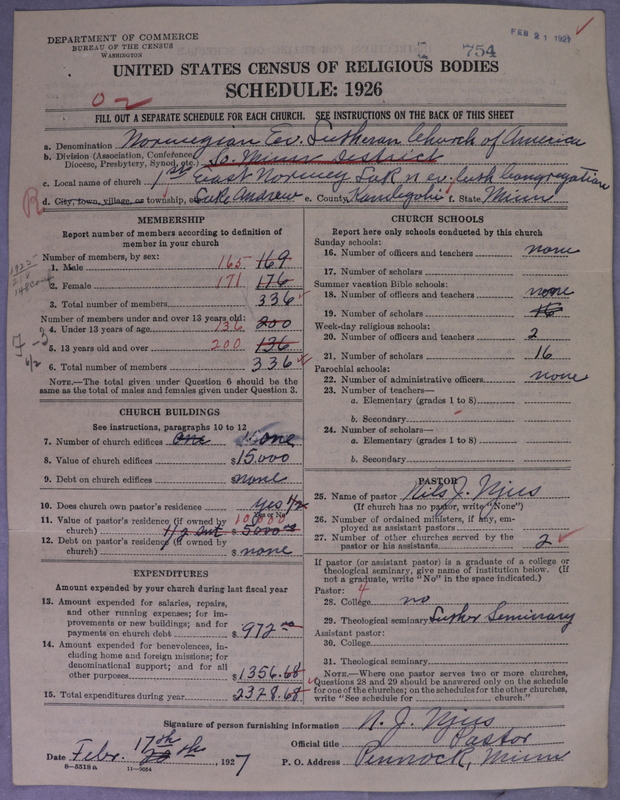 DEPARTMENT OF COMMERCE
BUREAU OF THE CENSUS
WASHINGTON
FEB 21 1927
754
UNITED STATES CENSUS OF RELIGIOUS BODIES
SCHEDULE: 1926
FILL OUT A SEPARATE SCHEDULE FOR EACH CHURCH. SEE INSTRUCTIONS ON THE BACK OF THIS SHEET
a. Denomination Norwegian Ev. Lutheran Church of America
b. Division (Association, Conference, Diocese, Presbytery, Synod, etc.) So. Minn District
c. Local name of church 1st East Norway Lak n ev. luth Congregation
d. City, town, village, or township, Lake Andrew e. County, Kandiyohi f. State, Minn
MEMBERSHIP
Report number of members according to definition of member in your church
Number of members, by sex:
1. Male 165 169
2. Female 171 176
3. Total number of members 336
Number of members under and over 13 years old:
4. Under 13 years of age 136 200
5. 13 years old and over 200 136
6. Total number of members 336
NOTE.—The total given under Question 6 should be the same as the total of males and females given under Question 3.
CHURCH BUILDINGS
See instructions, paragraphs 10 to 12
7. Number of church edifices one one
8. Value of church edifices $15,000
9. Debt on church edifices none
10. Does church own pastor's residence yes 1/2
Yes or No
11. Value of pastor's residence (if owned by church) $5000
12. Debt on pastor's residence (if owned by church) $none
EXPENDITURES
Amount expended by your church during last fiscal year
13. Amount expended for salaries, repairs, and other running expenses; for improvements or new buildings; and for payments on church debt $972
14. Amount expended for benevolences, including home and foreign missions; for denominational support; and for all other purposes $1356.68
15. Total expenditures during year $2328.68
CHURCH SCHOOLS
Report here only schools conducted by this church
Sunday schools:
16. Number of officers and teachers none
17. Number of scholars
Summer vacation Bible schools:
18. Number of officers and teachers none
19. Number of scholars 16
Week-day religious schools:
20. Number of officers and teachers 2
21. Number of scholars 16
Parochial schools:
22. Number of administrative officers none
23. Number of teachers—
a. Elementary (grades 1 to 8)
b. Secondary
24. Number of scholars—
a. Elementary (grades 1 to 8)
b. Secondary
PASTOR
25. Name of pastor Nils J. Njus
(If church has no pastor, write "None")
26. Number of ordained ministers, if any, employed as assistant pastors
27. Number of other churches served by the pastor or his assistants 2
If pastor (or assistant pastor) is a graduate of a college or theological seminary, give name of institution below. (If not a graduate, write "No" in the space indicated.)
Pastor: 4
28. College no
29. Theological seminary Luther Seminary
Assistant pastor:
30. College
31. Theological seminary
NOTE.—Where one pastor serves two or more churches, Questions 28 and 29 should be answered only on the schedule for one of the churches; on the schedules for the other churches, write "See schedule for church."
Signature of person furnishing information N. J. Njus
Official title Pastor
Date Febr. 17th 1927 P. O. Address Pennock, Minn
8—5518a 11—9054